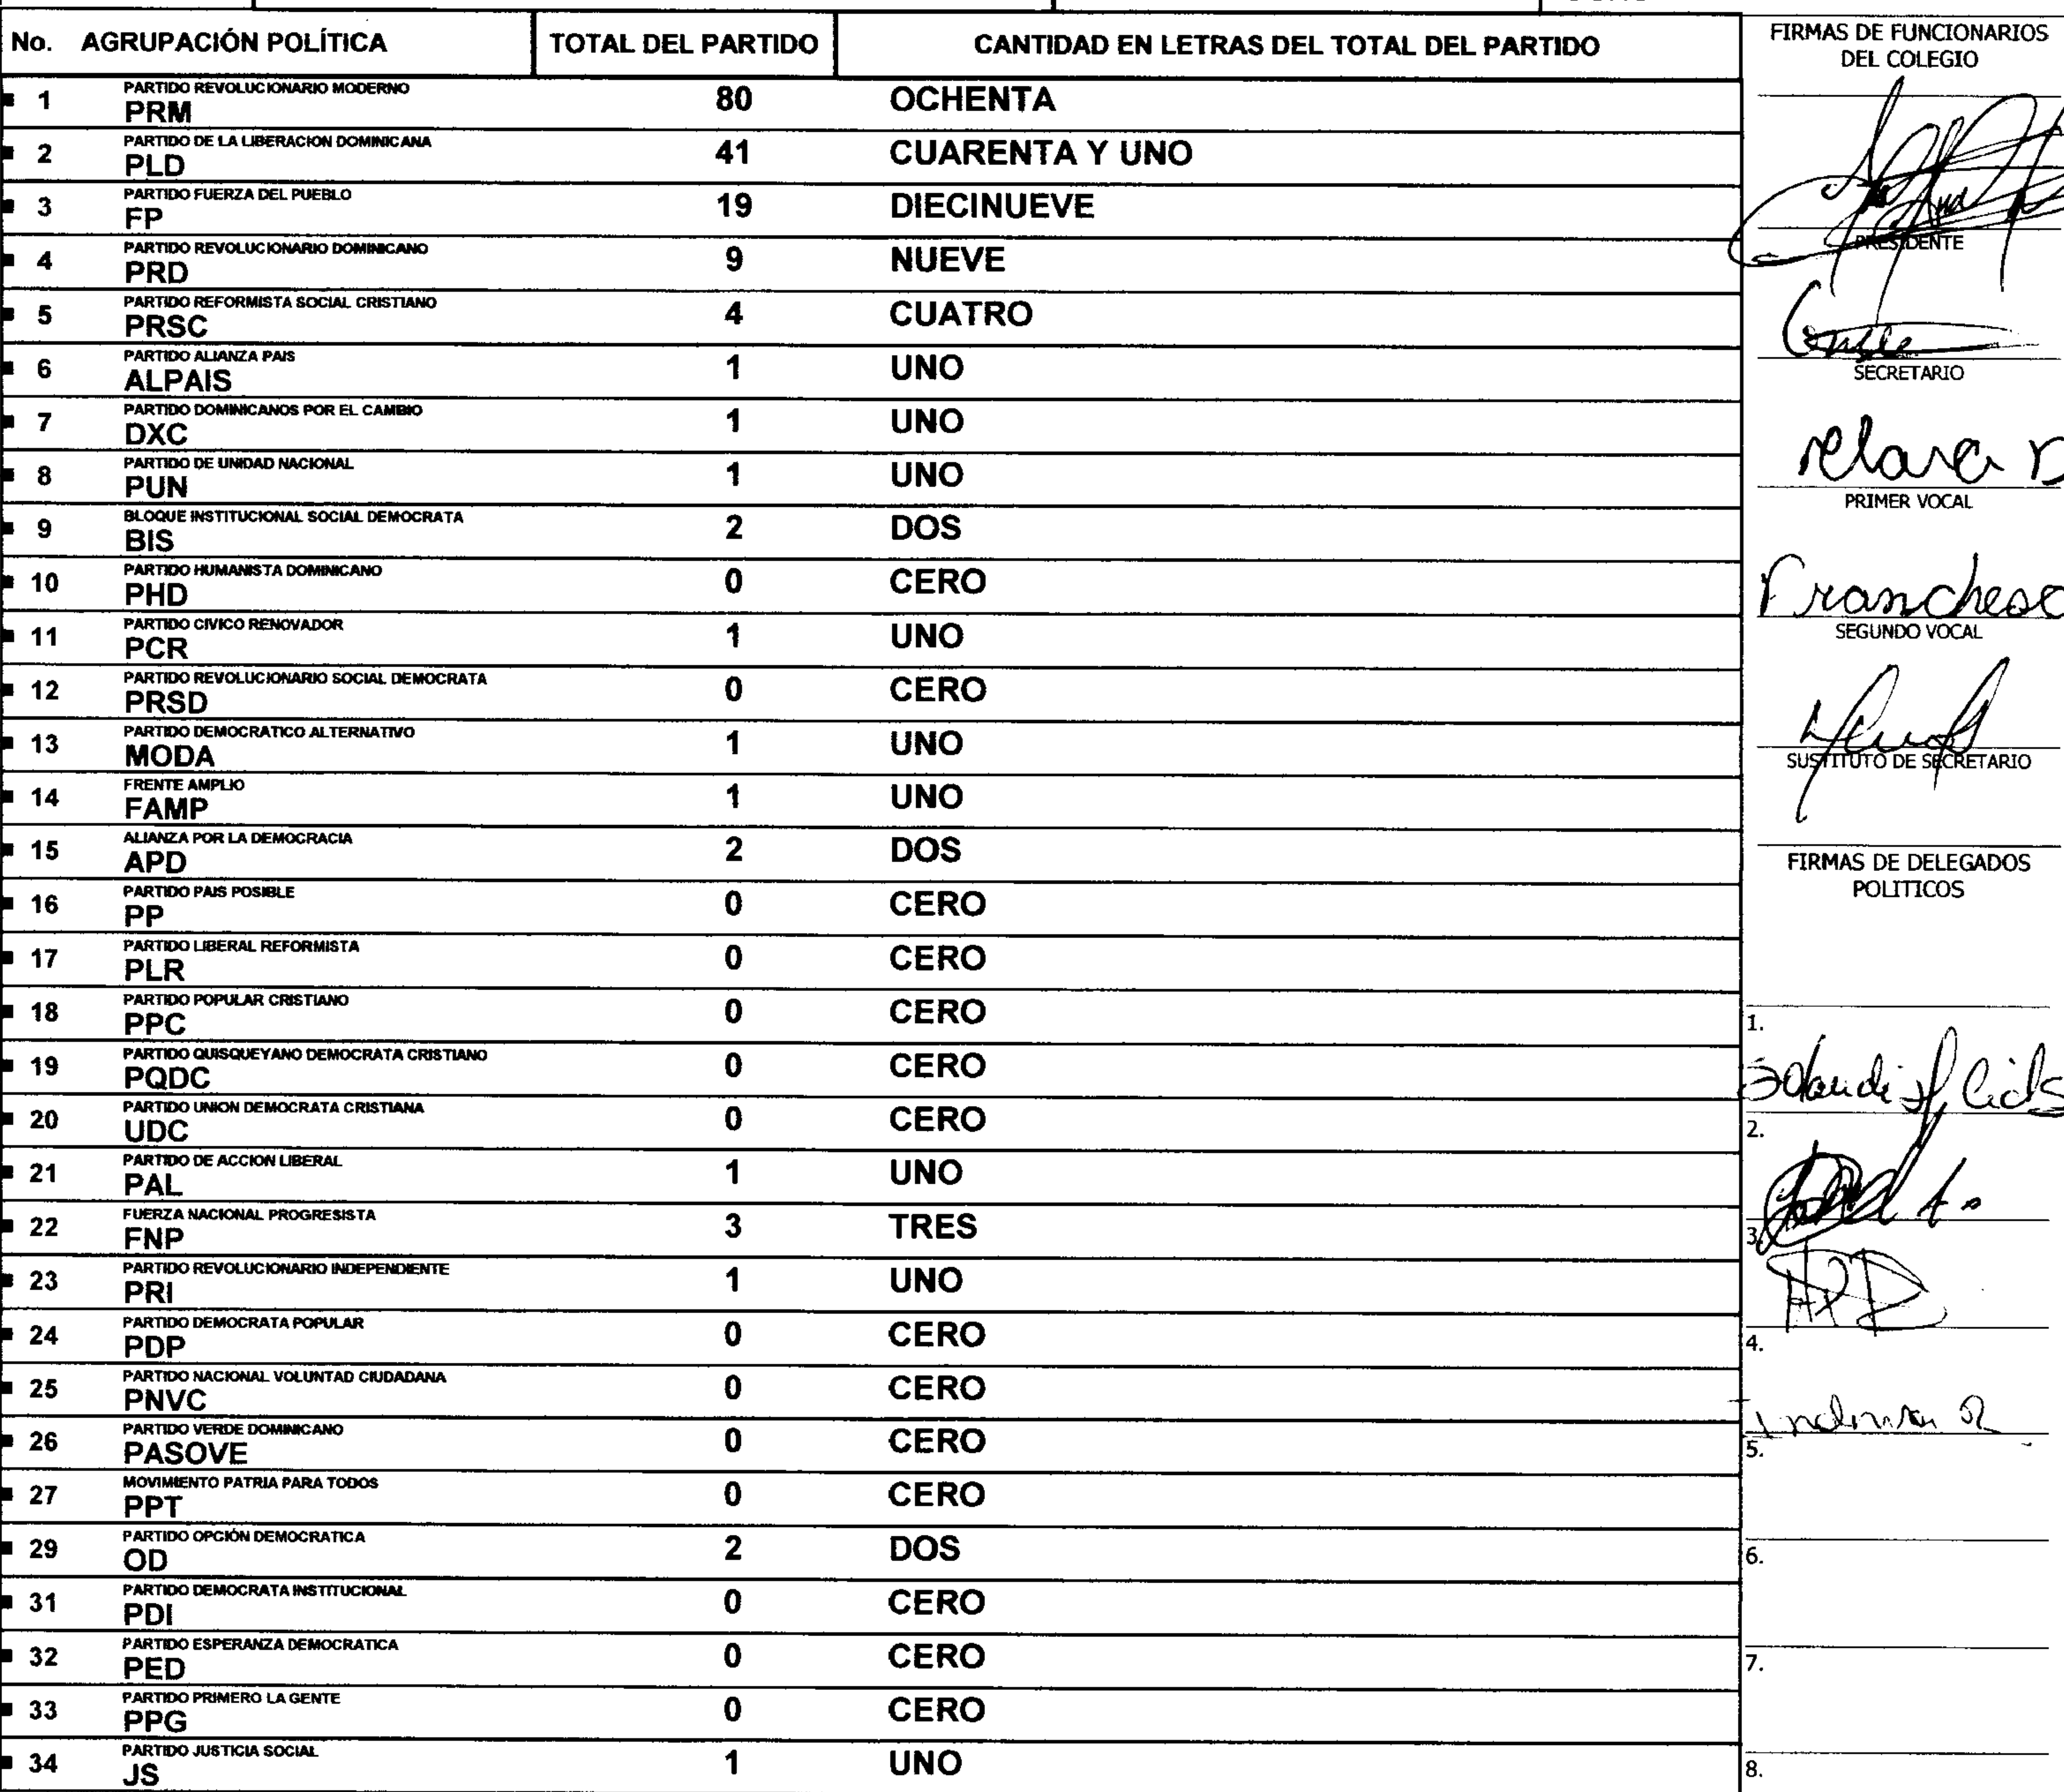 No. AGRUPACIÓN POLÍTICA TOTAL DEL PARTIDO CANTIDAD EN LETRAS DEL TOTAL DEL PARTIDO
1 PARTIDO REVOLUCIONARIO MODERNO
PRM 80 OCHENTA
2 PARTIDO DE LA LIBERACION DOMINICANA
PLD 41 CUARENTA Y UNO
3 PARTIDO FUERZA DEL PUEBLO
FP 19 DIECINUEVE
4 PARTIDO REVOLUCIONARIO DOMINICANO
PRD 9 NUEVE
5 PARTIDO REFORMISTA SOCIAL CRISTIANO
PRSC 4 CUATRO
6 PARTIDO ALIANZA PAIS
ALPAIS 1 UNO
7 PARTIDO DOMINICANOS POR EL CAMBIO
DXC 1 UNO
8 PARTIDO DE UNIDAD NACIONAL
PUN 1 UNO
9 BLOQUE INSTITUCIONAL SOCIAL DEMOCRATA
BIS 2 DOS
10 PARTIDO HUMANISTA DOMINICANO
PHD 0 CERO
11 PARTIDO CIVICO RENOVADOR
PCR 1 UNO
12 PARTIDO REVOLUCIONARIO SOCIAL DEMOCRATA
PRSD 0 CERO
13 PARTIDO DEMOCRATICO ALTERNATIVO
MODA 1 UNO
14 FRENTE AMPLIO
FAMP 1 UNO
15 ALIANZA POR LA DEMOCRACIA
APD 2 DOS
16 PARTIDO PAIS POSIBLE
PP 0 CERO
17 PARTIDO LIBERAL REFORMISTA
PLR 0 CERO
18 PARTIDO POPULAR CRISTIANO
PPC 0 CERO
19 PARTIDO QUISQUEYANO DEMOCRATA CRISTIANO
PQDC 0 CERO
20 PARTIDO UNION DEMOCRATA CRISTIANA
UDC 0 CERO
21 PARTIDO DE ACCION LIBERAL
PAL 1 UNO
22 FUERZA NACIONAL PROGRESISTA
FNP 3 TRES
23 PARTIDO REVOLUCIONARIO INDEPENDIENTE
PRI 1 UNO
24 PARTIDO DEMOCRATA POPULAR
PDP 0 CERO
25 PARTIDO NACIONAL VOLUNTAD CIUDADANA
PNVC 0 CERO
26 PARTIDO VERDE DOMINICANO
PASOVE 0 CERO
27 MOVIMIENTO PATRIA PARA TODOS
PPT 0 CERO
29 PARTIDO OPCIÓN DEMOCRATICA
OD 2 DOS
31 PARTIDO DEMOCRATA INSTITUCIONAL
PDI 0 CERO
32 PARTIDO ESPERANZA DEMOCRATICA
PED 0 CERO
33 PARTIDO PRIMERO LA GENTE
PPG 0 CERO
34 PARTIDO JUSTICIA SOCIAL
JS 1 UNO
FIRMAS DE FUNCIONARIOS
DEL COLEGIO
PRESIDENTE
SECRETARIO
PRIMER VOCAL
SEGUNDO VOCAL
SUSTITUTO DE SECRETARIO
FIRMAS DE DELEGADOS
POLITICOS
1.
2.
3.
4.
5.
6.
7.
8.